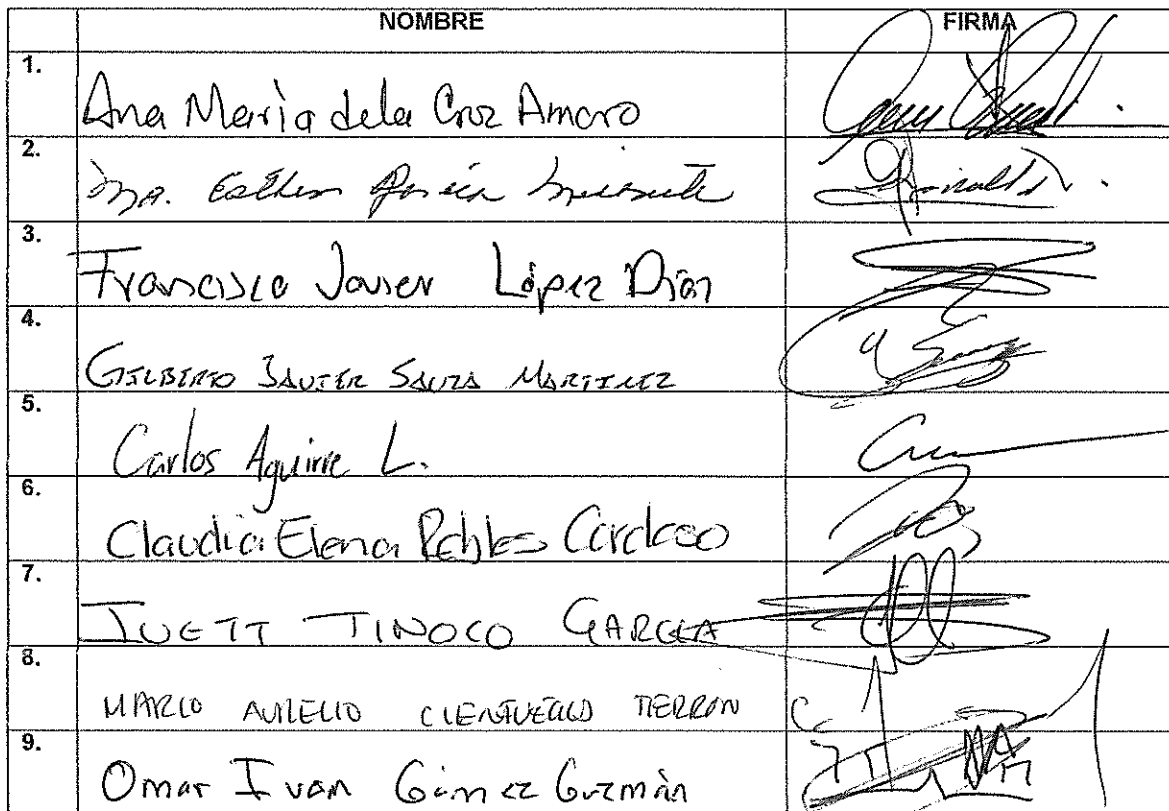 NOMBRE FIRMA
1. Ana María de la Cruz Amaro
2. Ma. Esther
3. Francisco Javier López Díaz
4. GILBERTO JAVIER SAUZA MARTINEZ
5. Carlos Aguirre L.
6. Claudia Elena Robles Cardoso
7. IVETT TINOCO GARCIA
8. MARCO AURELIO CIENFUEGOS TERRON
9. Omar Ivan Gámez Guzmán